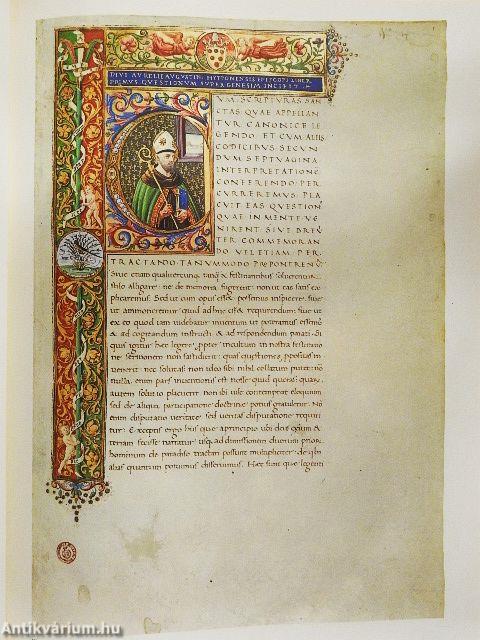 DIVI AVRELII AVGVSTINI HYPPONENSIS EPISCOPI LIBER
PRIMVS QVESTIONVM SVPER GENESIM INCIPIT
VM SCRIPTVRAS SAN
CTAS QVAE APPELLAN
TVR CANONICE LE
GENDO ET CVM ALIIS
CODICIBVS SECVN
DVM SEPTVAGINA
INTERPRETATIONE
CONFERENDO PER
CVRREREMVS PLA
CVIT EAS QVESTION
QVAE IN MENTE VE
NIRENT SIVE BREVI
TER COMMEMORAN
DO VEL ETIAM PER
TRACTANDO TANVMMODO PROPONEREN
Sive etiam qualitercunq; tanq; a festinantibus solverentur
stilo alligare: ne de memoria fugerent: non ut eas satis ex
plicaremus. Sed ut cum opus esset possemus inspicere: sive ut
ut ammoneremur quid adhuc esset requirendum: sive ut
ex eo quod iam videbatur inventum ut poteramus essemus
& ad cogitandum instructi & ad respondendum parati. Si
quis igitur hec legere propter incultum in nostra festinatio
ne sermonem non fastidierit: quas questiones propositas in
venerit: nec solutas: non ideo sibi nihil collatum putet: no
nulla enim pars inventionis est nosse quid queras: quarum
autem solutio placuerit: non ibi vile contemptat eloquium
sed de aliqua participatione doctrine potius gratuletur. No
enim disputatio veritate: sed veritas disputatione requiri
tur: Exceptis ergo his que a principio ubi deus celum &
terram fecisse narratur usq; ad dimissionem duorum priorum
hominum de paradiso tractari possunt multipliciter: de quibus
alias quantum potuimus disseruimus. Hec sunt que legenti
Antikvárium.hu